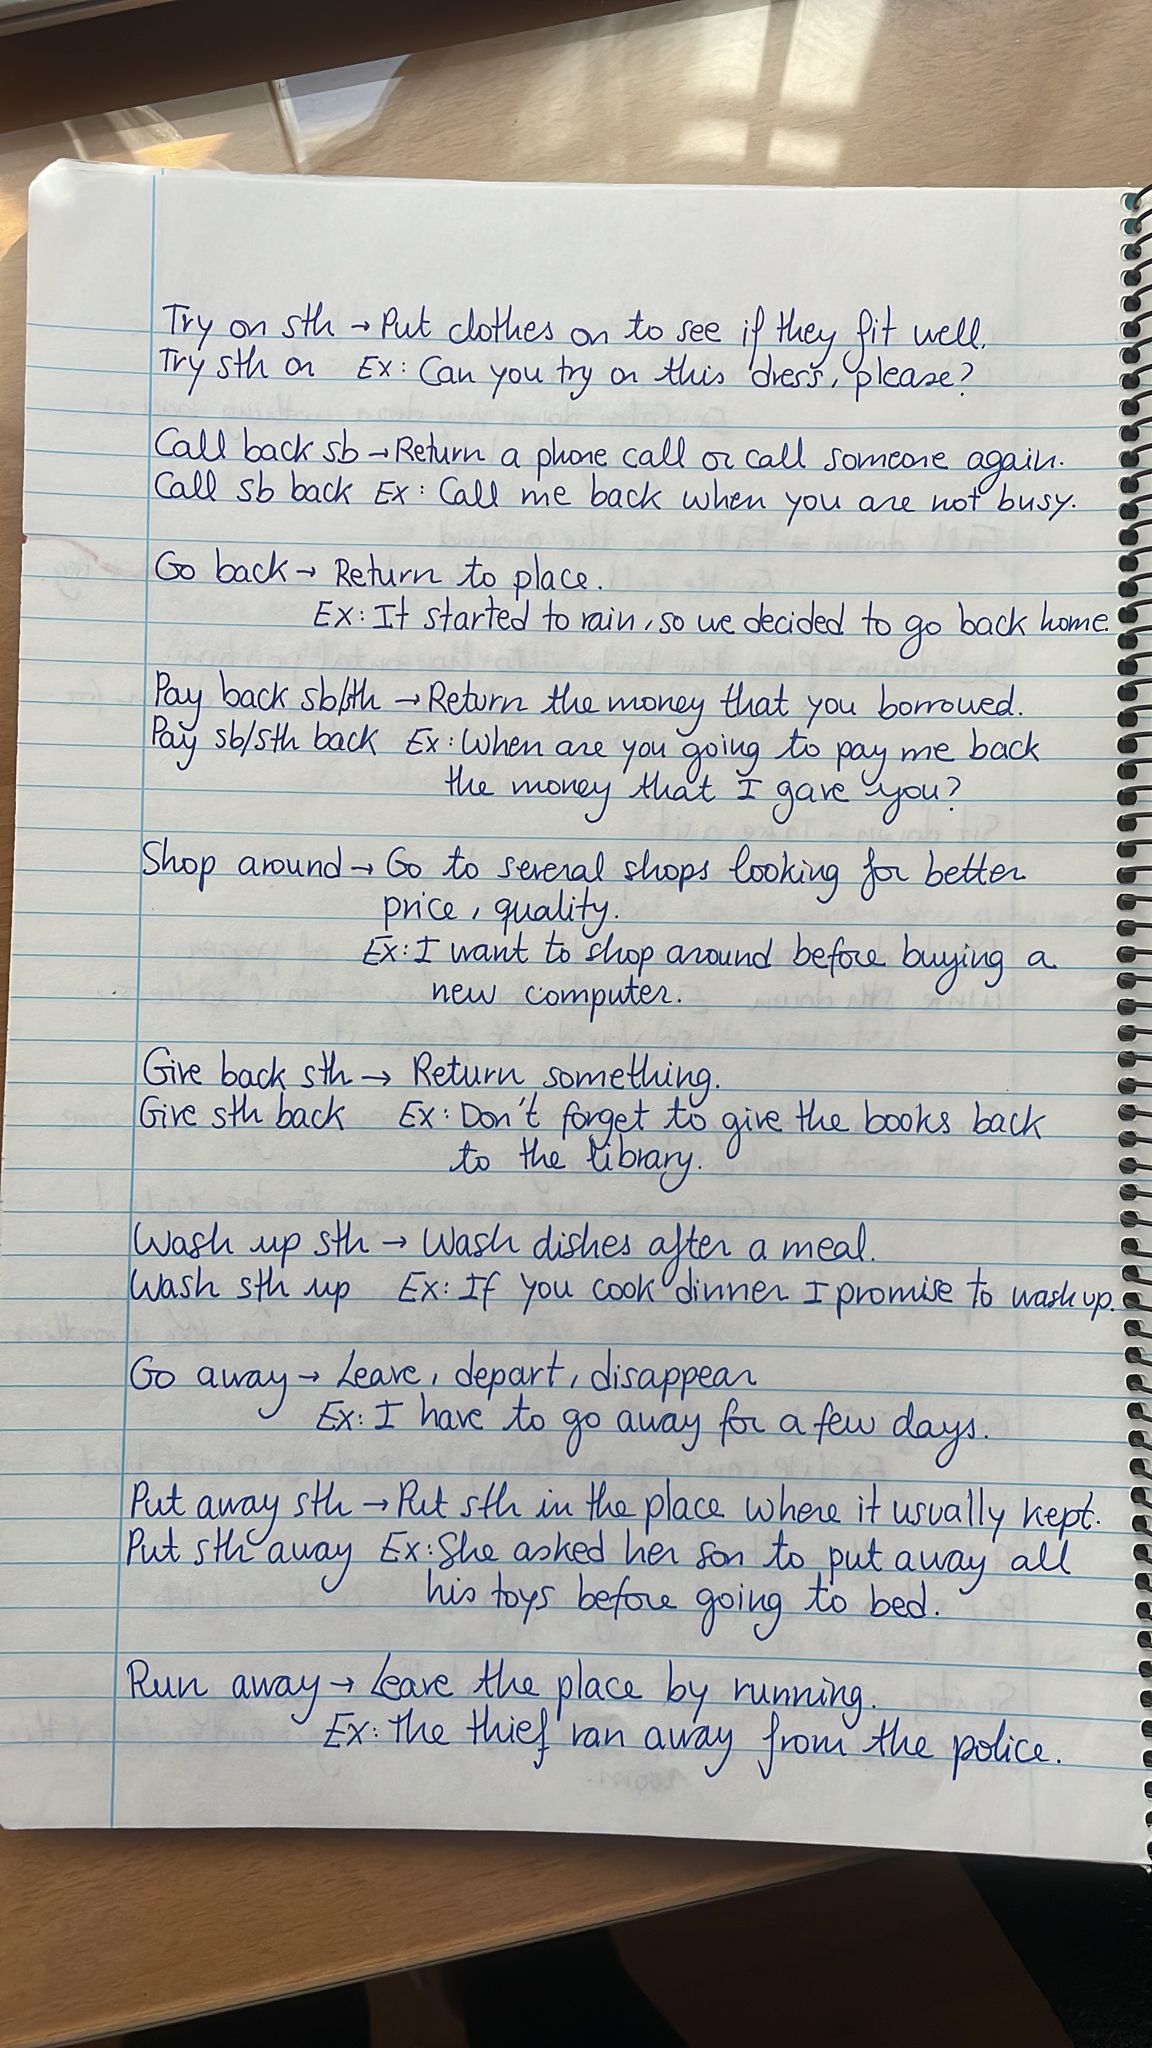 Try on sth → Put clothes on to see if they fit well.
Try sth on Ex: Can you try on this dress, please?
Call back sb → Return a phone call or call someone again.
Call sb back Ex: Call me back when you are not busy.
Go back → Return to place.
Ex: It started to rain, so we decided to go back home.
Pay back sb/sth → Return the money that you borrowed.
Pay sb/sth back Ex: When are you going to pay me back
the money that I gave you?
Shop around → Go to several shops looking for better
price, quality.
Ex: I want to shop around before buying a
new computer.
Give back sth → Return something.
Give sth back Ex: Don't forget to give the books back
to the library.
Wash up sth → Wash dishes after a meal.
Wash sth up Ex: If you cook dinner I promise to wash up.
Go away → Leave, depart, disappear
Ex: I have to go away for a few days.
Put away sth → Put sth in the place where it usually kept.
Put sth away Ex: She asked her son to put away all
his toys before going to bed.
Run away → Leave the place by running.
Ex: The thief ran away from the police.